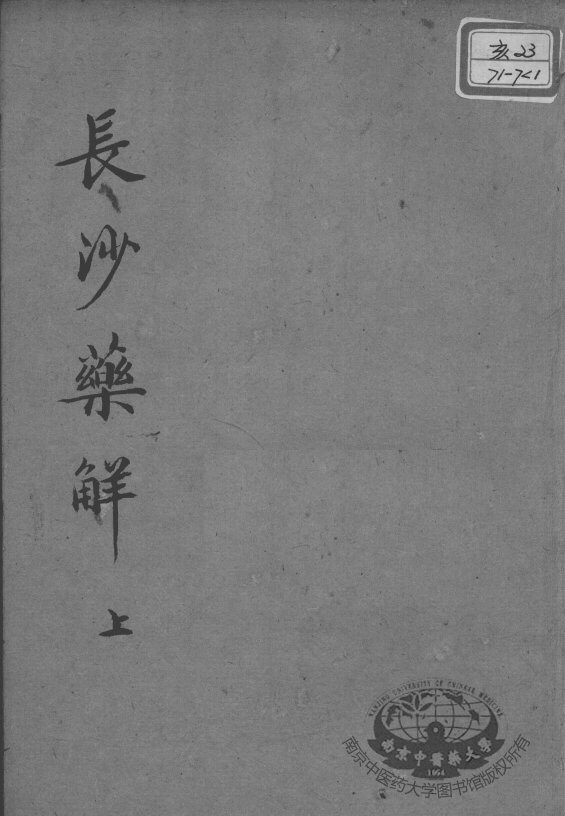 長沙藥觧
上
亥23
71-721
NANJING UNIVERSITY OF CHINESE MEDICINE
南京中醫藥大學
1954
南京中医药大学图书馆版权所有